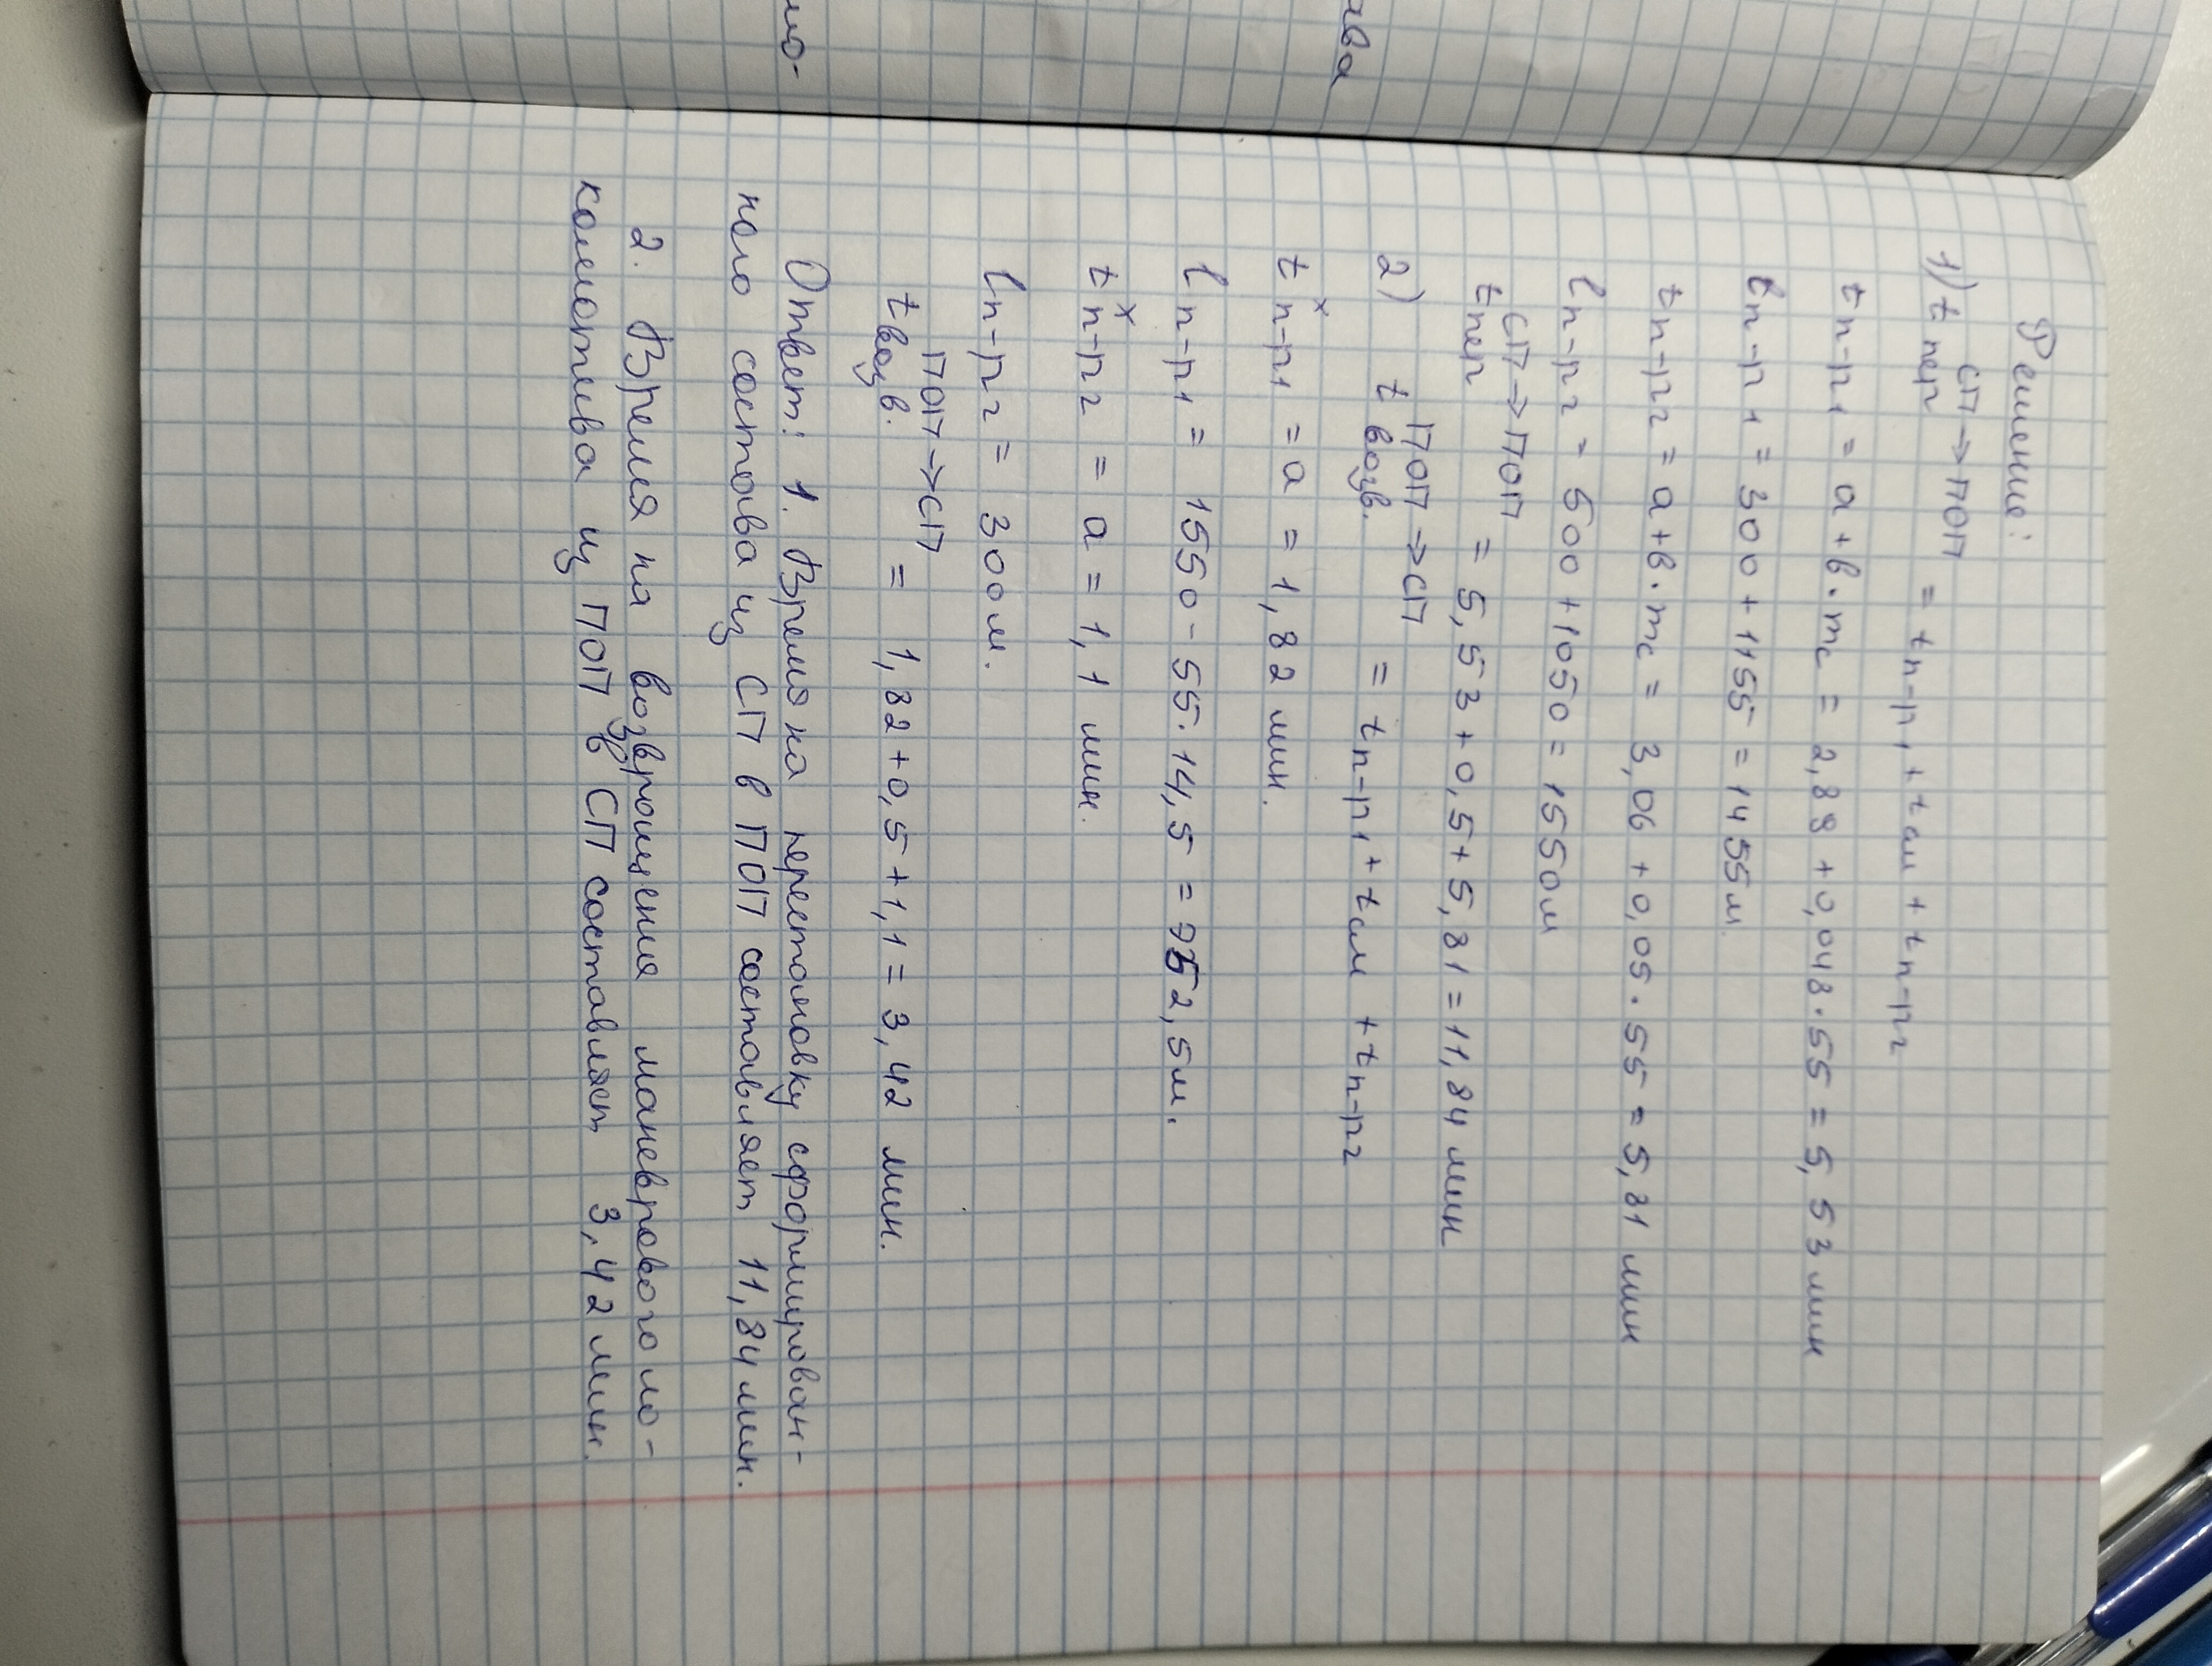 Решение:
1) t пер СП→ПОП = t п-р1 + t см + t п-р2
t п-р1 = a + в · mc = 2,89 + 0,048 · 55 = 5,53 мин
ℓ п-р1 = 300 + 1155 = 1455 м.
t п-р2 = a + в · mc = 3,06 + 0,05 · 55 = 5,81 мин
ℓ п-р2 = 500 + 1050 = 1550 м
t пер СП→ПОП = 5,53 + 0,5 + 5,81 = 11,84 мин
2) t возв. ПОП→СП = t п-р1 + t см + t п-р2
t х п-р1 = a = 1,82 мин.
ℓ п-р1 = 1550 - 55 · 14,5 = 752,5 м.
t х п-р2 = a = 1,1 мин.
ℓ п-р2 = 300 м.
t возв. ПОП→СП = 1,82 + 0,5 + 1,1 = 3,42 мин.
Ответ: 1. Время на перестановку сформирован-
ного состава из СП в ПОП составляет 11,84 мин.
2. Время на возвращения маневрового ло-
комотива из ПОП в СП составляет 3,42 мин.
ло-
ава